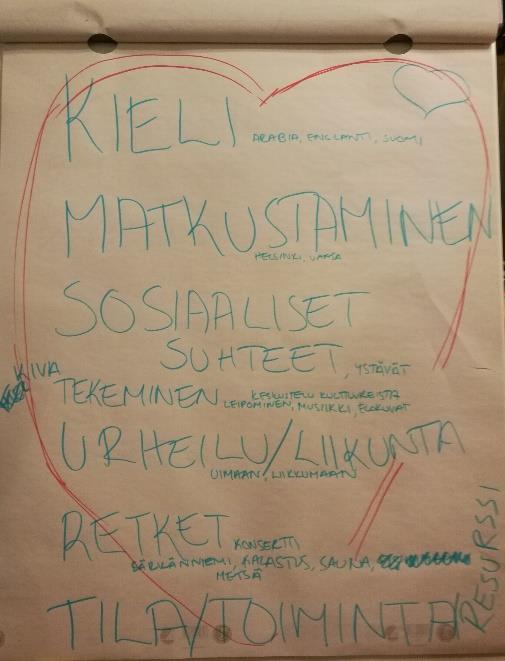 KIELI
ARABIA, ENGLANTI, SUOMI
MATKUSTAMINEN
HELSINKI, VAASA
SOSIAALISET
SUHTEET, YSTÄVÄT
KIVA
TEKEMINEN KESKUSTELU KULTTUUREISTA
LEIPOMINEN, MUSIIKKI, ELOKUVAT
URHEILU/LIIKUNTA
UIMAAN, LIIKKUMAAN
RETKET KONSERTTI
SÄRKÄNNIEMI, KALASTUS, SAUNA,
METSÄ
TILA/TOIMINTA/
RESURSSI